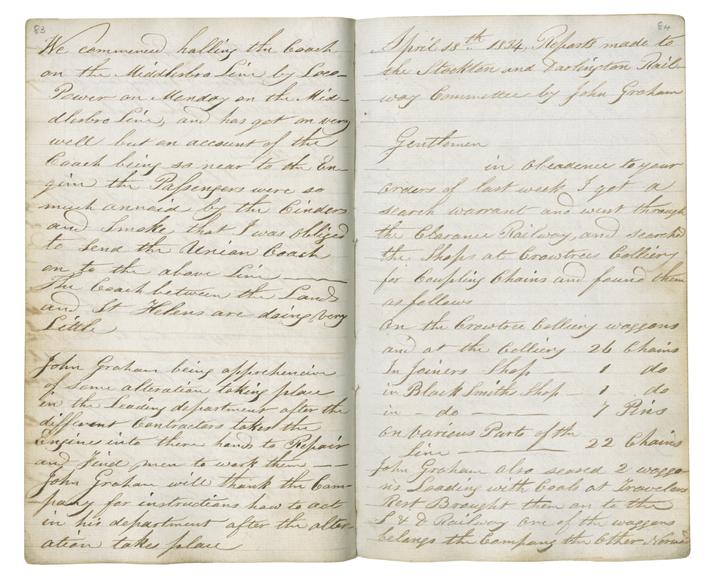 83
We commenced halling the Coach
on the Middlesbro Line by Loco-
Power on Monday on the Mid-
dlesbro Line, and has got on very
well but on account of the
Coach being so near to the En-
gine the Passengers were so
much annoid by the Cinders
and Smoke, that I was obliged
to Send the Union Coach
on to the above Line
The Coach between the Lands
and St Helens are doing very
Little
John Graham being apprehencive
of some alteration taking place
in the Leading department after the
different Contractors takes the
Engines into there hands to Repair
and Find men to work them
John Graham will thank the Com-
pany for instructions how to act
in his department after the alter-
ation takes place
84
April 18th 1834, Reports made to
the Stockton and Darlington Rail-
way Committee by John Graham
Gentlemen
in Obeadence to your
Orders of last week I got a
search warrant and went through
the Clearance Railway, and searched
the Shops at Crowtrees Colliery
for Coupling Chains and found them
as follows
On the Crowtree Colliery waggons
and at the Colliery 26 Chains
In Joiners Shop - 1 do
in Black Smiths Shop - 1 do
in - do - 7 Pins
On Various Parts of the
Line 22 Chains
John Graham also seased 2 waggo
ns Leading with Coals at Travelers
Rest Brought them on to the
S & D Railway one of the waggons
belongs the Company the Other